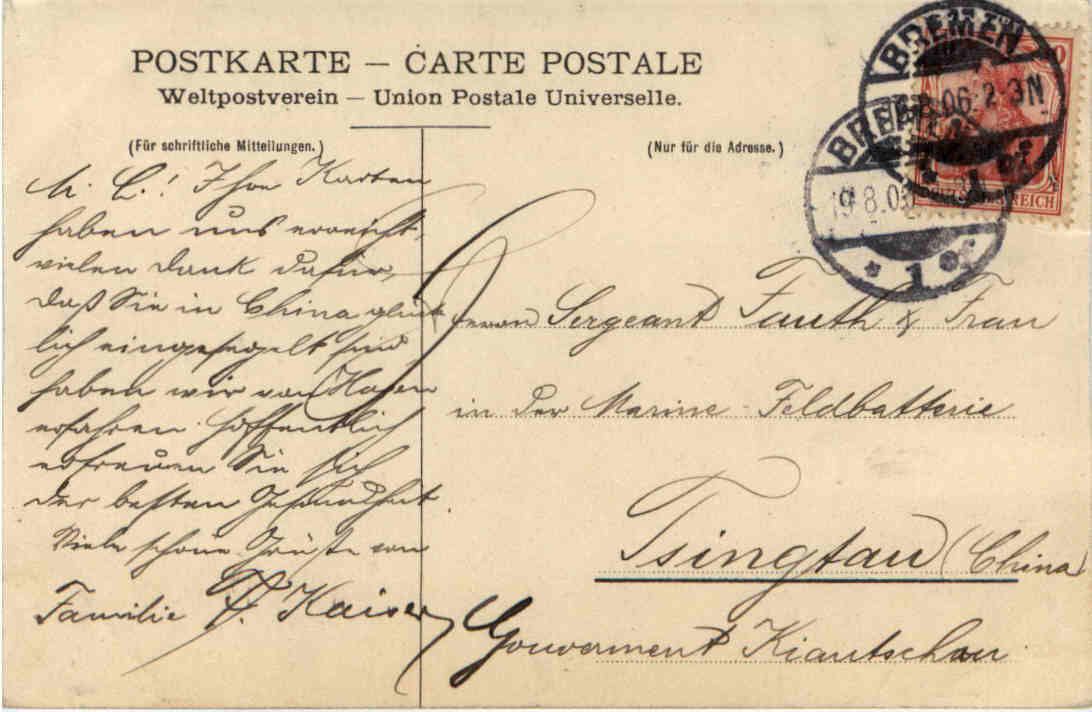 POSTKARTE – CARTE POSTALE
Weltpostverein – Union Postale Universelle.
(Für schriftliche Mitteilungen.)
(Nur für die Adresse.)
BREMEN
06 2-3N
1
BRE
19.8.06
* 1 *
REICH
M. L.! Ihre Karten
haben uns erreicht,
vielen Dank dafür,
daß Sie in China glück
lich eingesegelt sind
haben wir von
erfahren hoffentlich
erfreuen Sie sich
der besten Gesundheit
Viele schöne Grüße von
Familie Kaiser
Herrn Sergeant Fauth & Frau
in der Marine-Feldbatterie
Tsingtau (China)
Gouverment Kiautschau